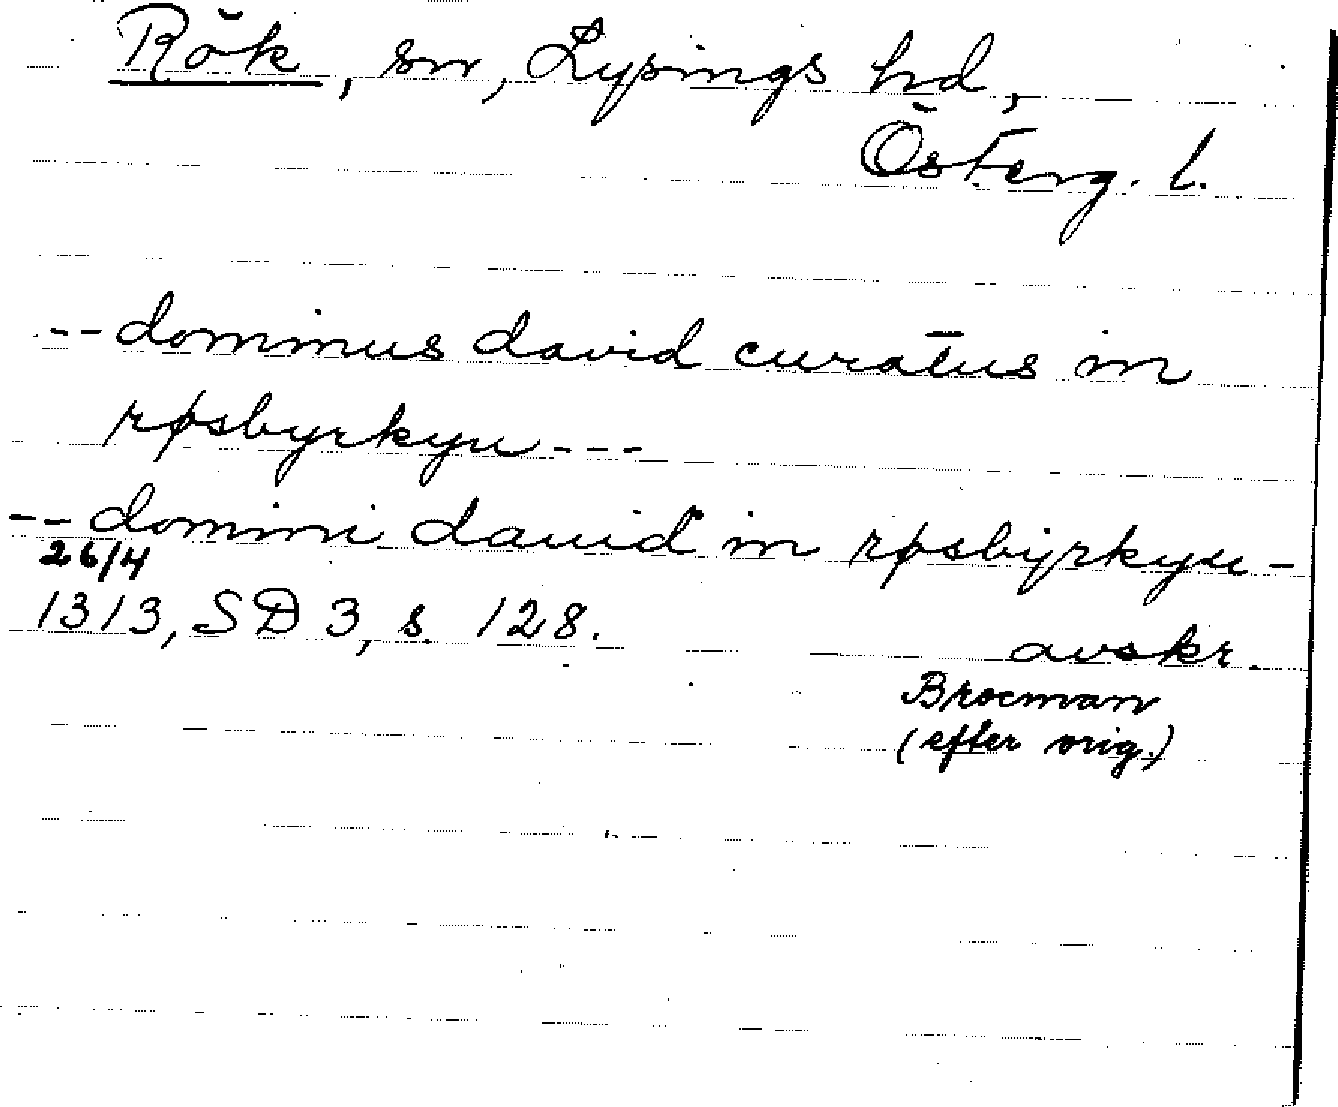 Rök, sn, Lysings hd,
Österg. l.
-- dominus david curatus in
røsbyrkyu ---
-- domini dauid in røsbyrkyu -
26/4
1313, SD 3, s. 128.
avskr.
Brocman
(efter orig.)